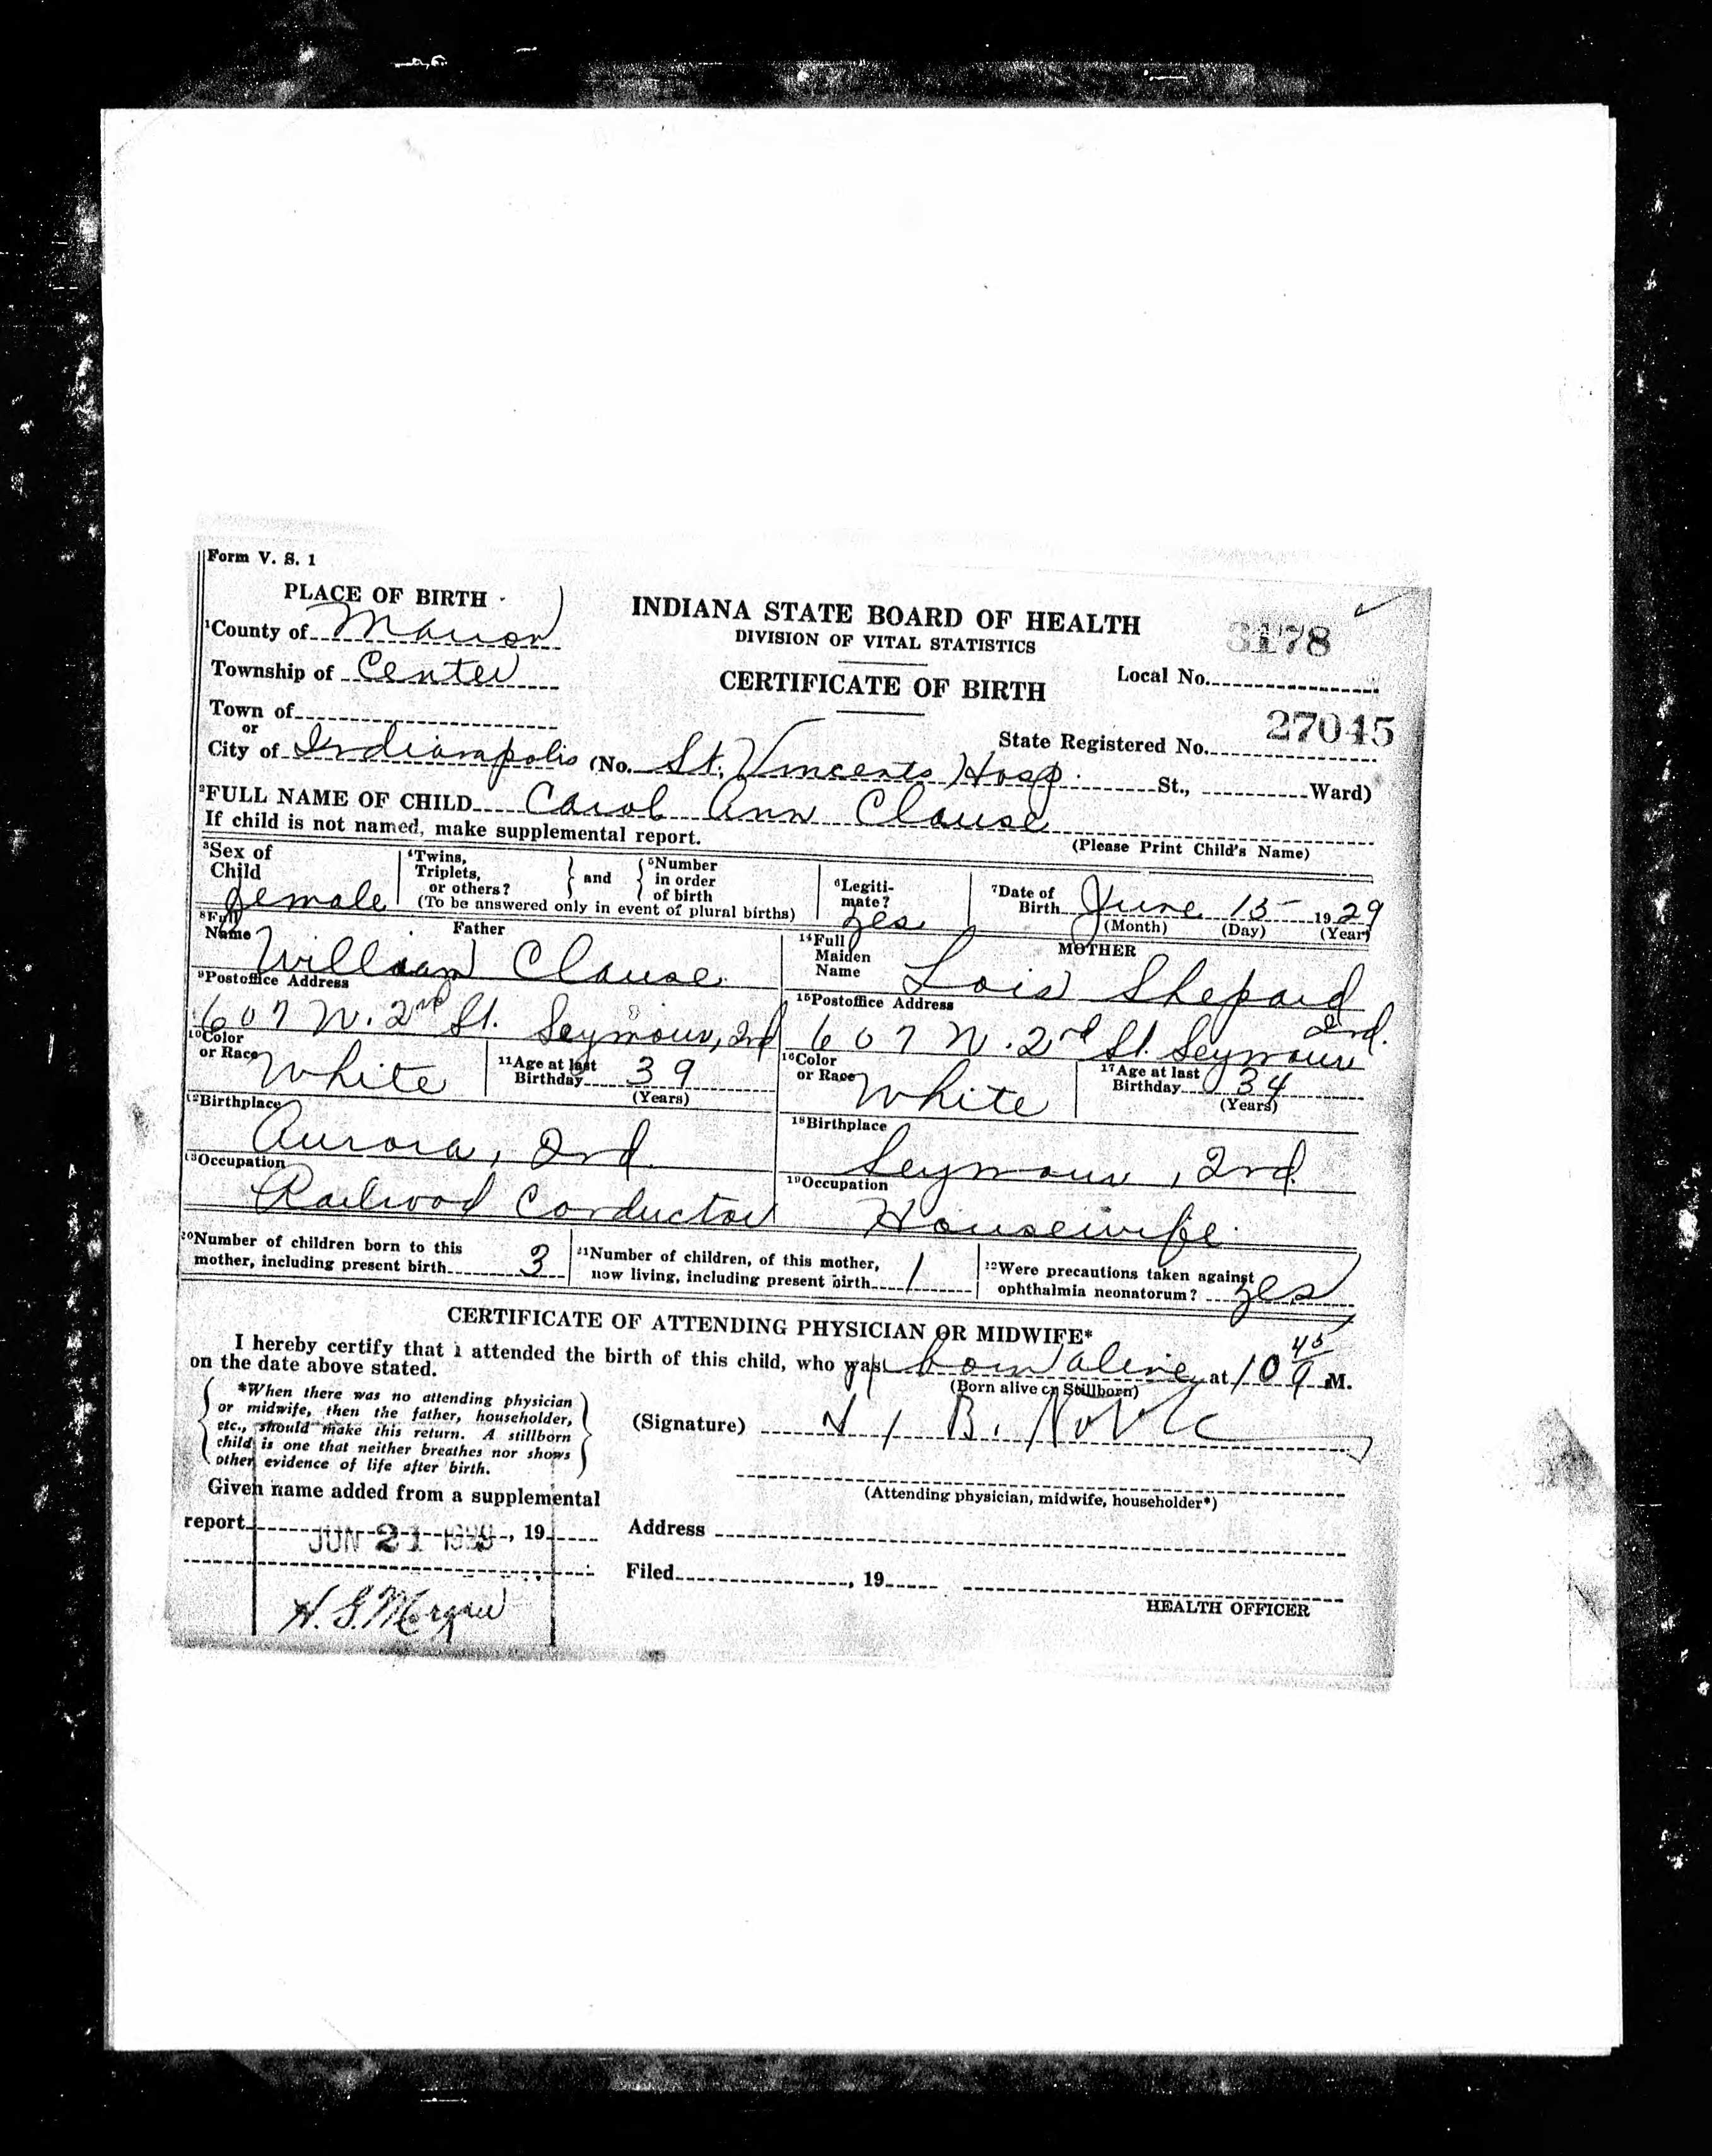 Form V. S. 1
PLACE OF BIRTH
INDIANA STATE BOARD OF HEALTH
DIVISION OF VITAL STATISTICS
CERTIFICATE OF BIRTH
1County of Marion
Township of Center
Town of
or
City of Indianapolis (No. St. Vincents Hosp. St., Ward)
3178
Local No.
27045
State Registered No.
2FULL NAME OF CHILD Carol Ann Clause
If child is not named, make supplemental report.
(Please Print Child's Name)
3Sex of Child female
4Twins, Triplets, or others? } and { 5Number in order of birth
(To be answered only in event of plural births)
6Legitimate? yes
7Date of Birth June 15 1929
(Month) (Day) (Year)
8Full Name Father
William Clause
9Postoffice Address
607 N. 2nd St. Seymour, Ind
10Color or Race White
11Age at last Birthday 39
(Years)
12Birthplace
Aurora, Ind.
13Occupation
Railroad Conductor
MOTHER
14Full Maiden Name Lois Shepard
15Postoffice Address
607 N. 2nd St. Seymour Ind.
16Color or Race White
17Age at last Birthday 34
(Years)
18Birthplace
Seymour, Ind.
19Occupation
Housewife
20Number of children born to this mother, including present birth 3
21Number of children, of this mother, now living, including present birth 1
22Were precautions taken against ophthalmia neonatorum? yes
CERTIFICATE OF ATTENDING PHYSICIAN OR MIDWIFE*
I hereby certify that I attended the birth of this child, who was born alive at 10 45 A M.
(Born alive or Stillborn)
on the date above stated.
*When there was no attending physician
or midwife, then the father, householder,
etc., should make this return. A stillborn
child is one that neither breathes nor shows
other evidence of life after birth.
(Signature) B. Noble
(Attending physician, midwife, householder*)
Given name added from a supplemental
report JUN 21 1929, 19
Address
Filed , 19
HEALTH OFFICER
H. G. Morgan